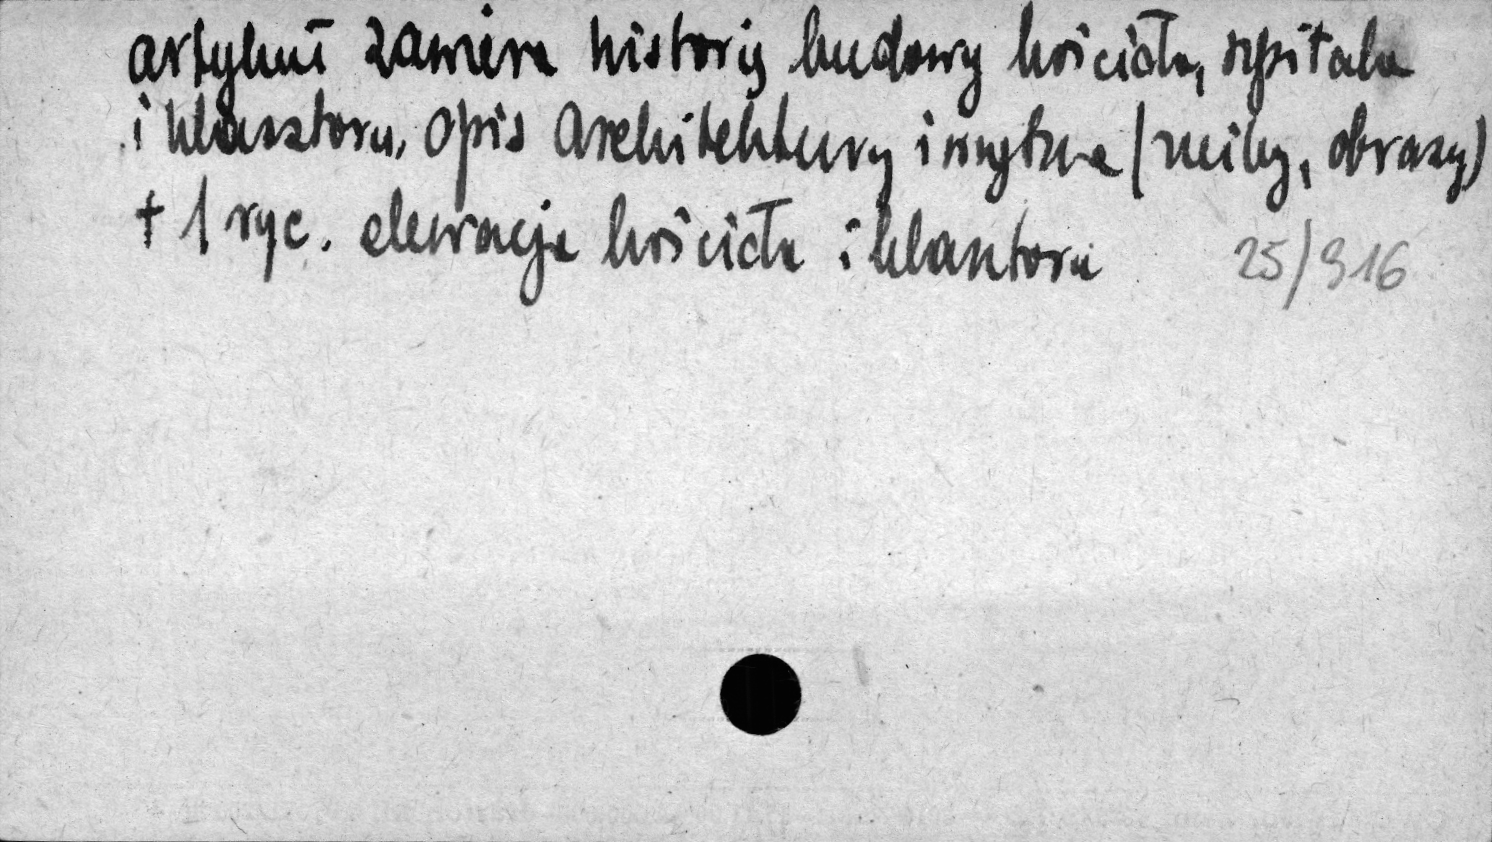 artykuł zawiera historię budowy kościoła, szpitala
i klasztoru, opis architektury i wnętrza (rzeźby, obrazy)
+ 1 ryc. elewacja kościoła i klasztoru 25/916